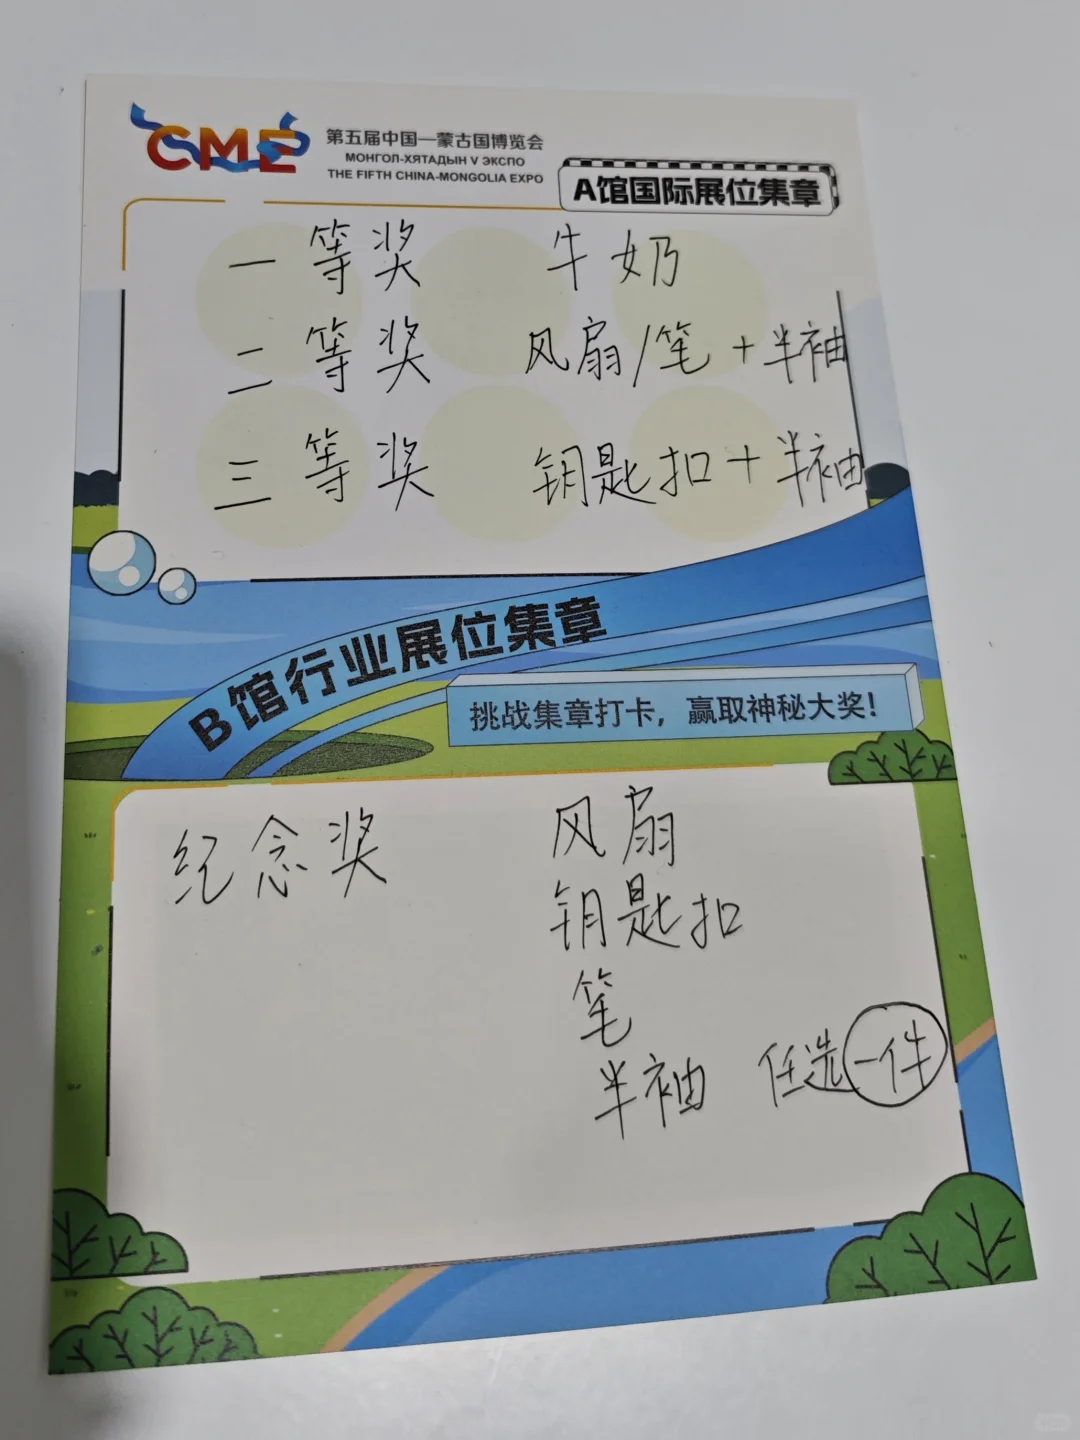 CME
第五届中国—蒙古国博览会
МОНГОЛ-ХЯТАДЫН V ЭКСПО
THE FIFTH CHINA-MONGOLIA EXPO
A馆国际展位集章
一等奖 牛奶
二等奖 风扇/笔+半袖
三等奖 钥匙扣+半袖
B馆行业展位集章
挑战集章打卡，赢取神秘大奖！
纪念奖 风扇
钥匙扣
笔
半袖 任选一件